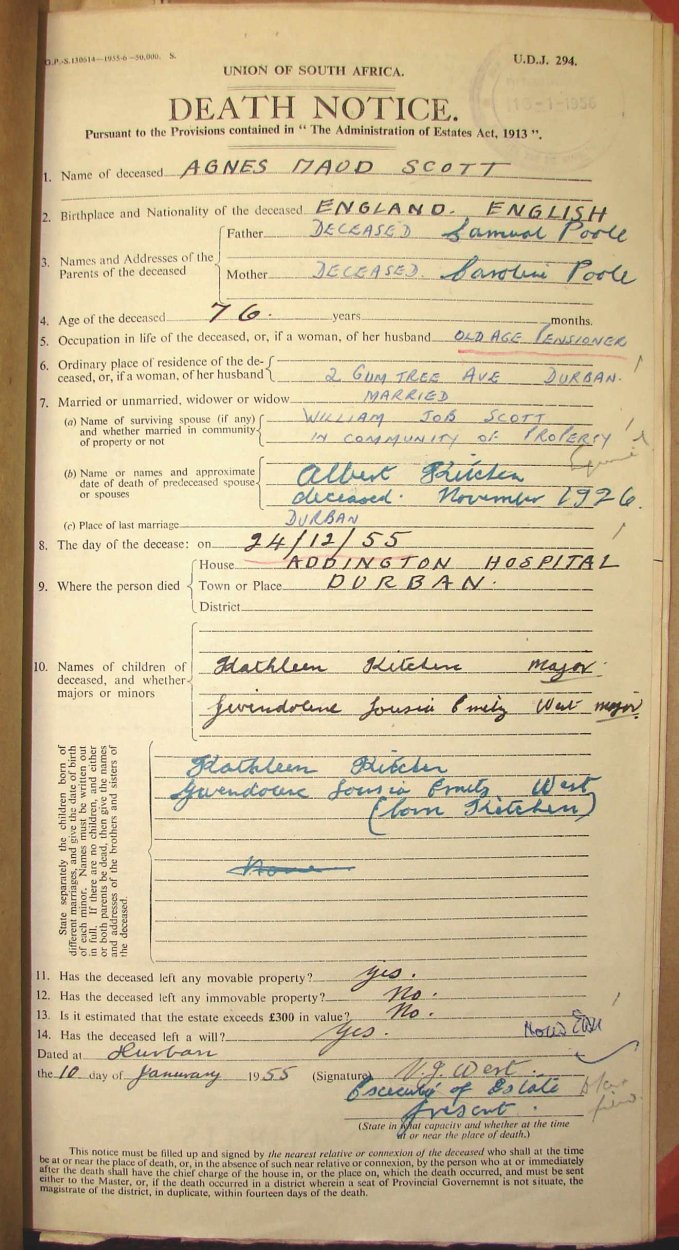 G.P.-S.130614—1955-6—50,000. S.
U.D.J. 294.
UNION OF SOUTH AFRICA.
18-1-1956
DEATH NOTICE.
Pursuant to the Provisions contained in “ The Administration of Estates Act, 1913 ”.
1. Name of deceased AGNES MAUD SCOTT
2. Birthplace and Nationality of the deceased ENGLAND. ENGLISH
3. Names and Addresses of the Parents of the deceased
Father DECEASED Samuel Poole
Mother DECEASED. Caroline Poole
4. Age of the deceased 76. years months.
5. Occupation in life of the deceased, or, if a woman, of her husband OLD AGE PENSIONER
6. Ordinary place of residence of the de-
ceased, or, if a woman, of her husband 2 GUM TREE AVE DURBAN.
7. Married or unmarried, widower or widow MARRIED
(a) Name of surviving spouse (if any) WILLIAM JOB SCOTT
and whether married in community
of property or not IN COMMUNITY OF PROPERTY
(b) Name or names and approximate Albert Kitchen
date of death of predeceased spouse
or spouses deceased. November 1926.
(c) Place of last marriage DURBAN
8. The day of the decease: on 24/12/55
9. Where the person died
House ADDINGTON HOSPITAL
Town or Place DURBAN.
District
10. Names of children of Kathleen Kitchen major.
deceased, and whether
majors or minors Gwendolene Lousia Emily West major.
State separately the children born of
different marriages, and give the date of birth
of each minor. Names must be written out
in full. If there are no children, and either
or both parents be dead, then give the names
and addresses of the brothers and sisters of
the deceased.
Kathleen Kitchen
Gwendolene Lousia Emily West
(born Kitchen)
None
11. Has the deceased left any movable property? yes.
12. Has the deceased left any immovable property? No.
13. Is it estimated that the estate exceeds £300 in value? No.
14. Has the deceased left a will? Yes.
Dated at Durban
the 10 day of January 1955 (Signature) V.J. West.
of Estate
present.
(State in what capacity and whether at the time
at or near the place of death.)
This notice must be filled up and signed by the nearest relative or connexion of the deceased who shall at the time
be at or near the place of death, or, in the absence of such near relative or connexion, by the person who at or immediately
after the death shall have the chief charge of the house in, or the place on, which the death occurred, and must be sent
either to the Master, or, if the death occurred in a district wherein a seat of Provincial Governemnt is not situate, the
magistrate of the district, in duplicate, within fourteen days of the death.